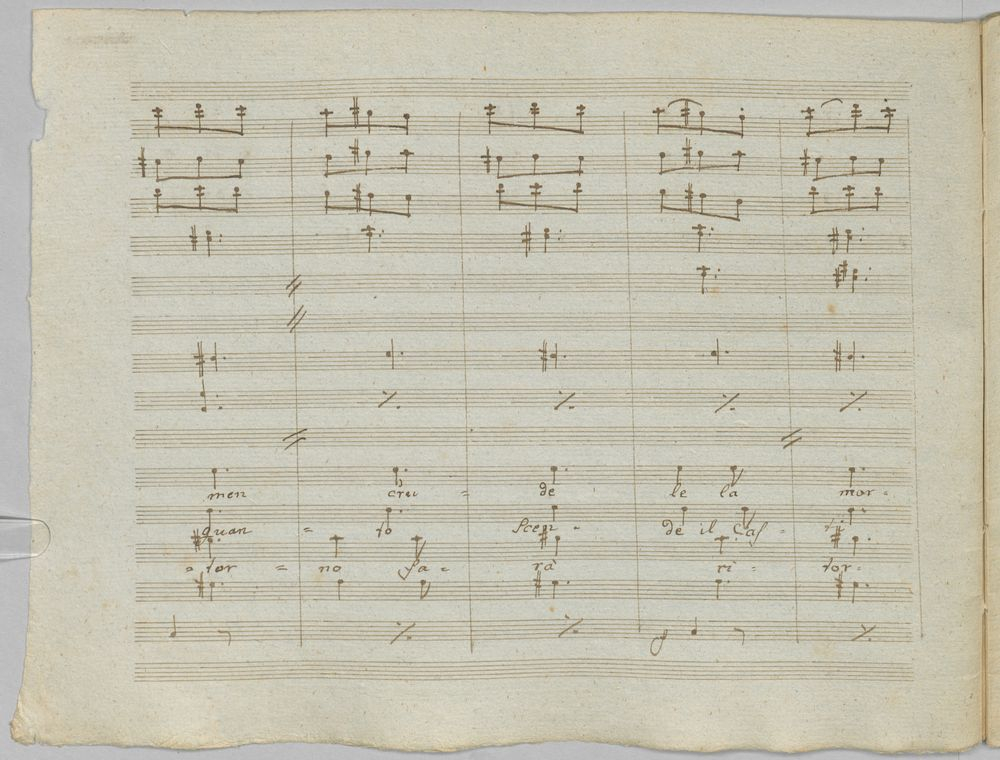 men cru = de le la mor-
quan = to Scen - de il Cas -
= tor = no fa = rà ri = tor=